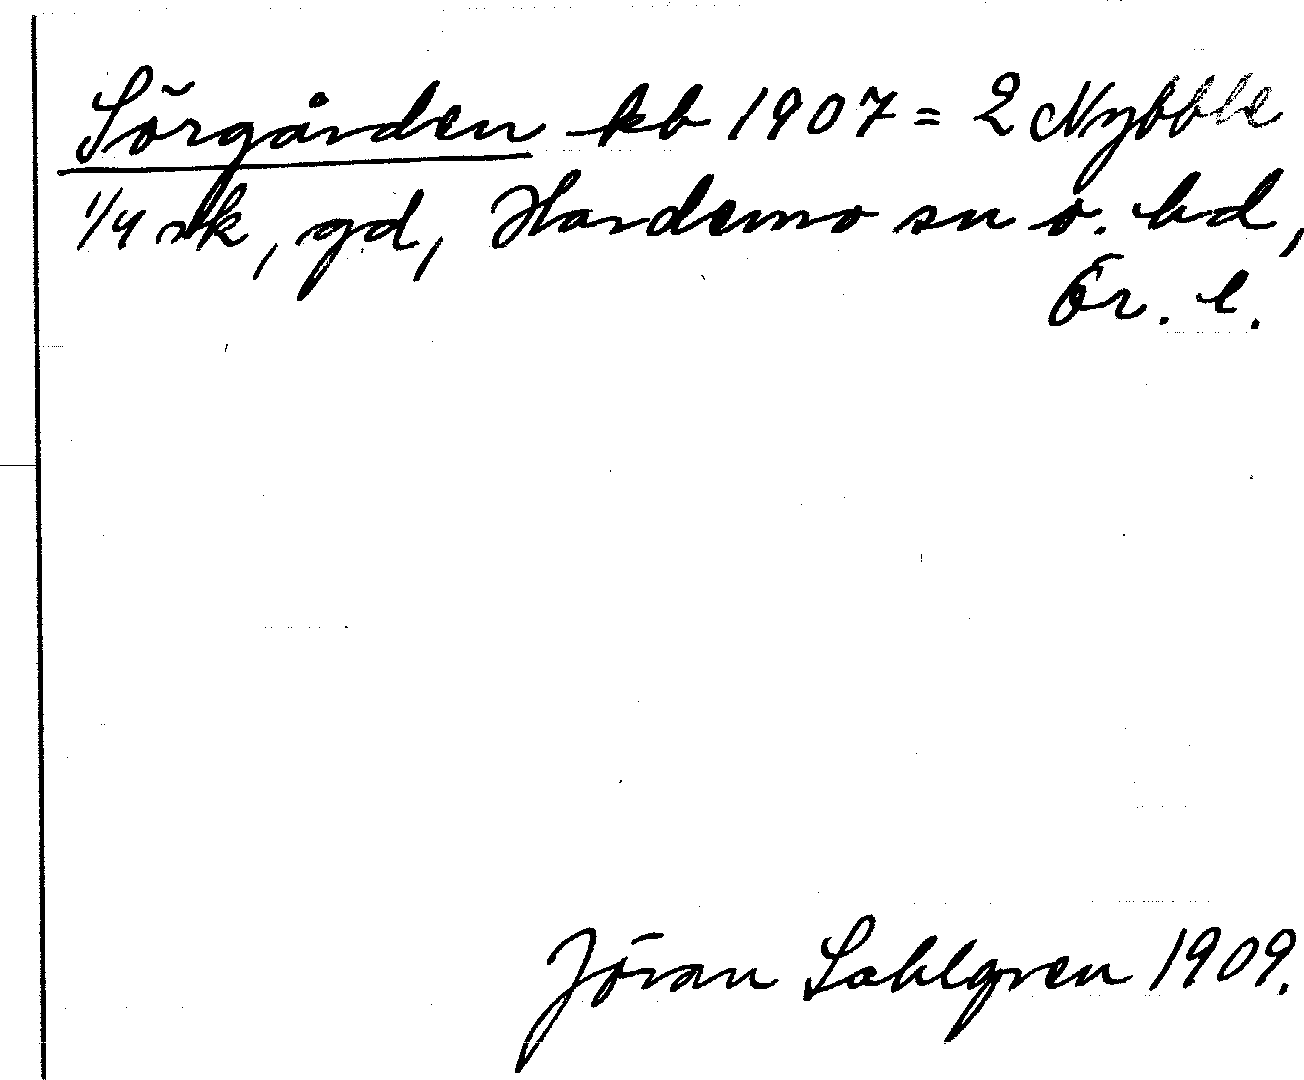 Sörgården kb 1907 = 2 Nybble
1/4 sk, gd, Hardemo sn o. hd,
Ör. l.
Jöran Sahlgren 1909.